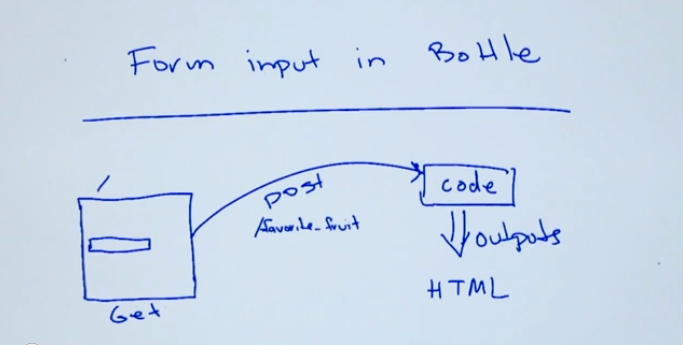 Form input in Bottle
/
post
/favorite_fruit
code
outputs
HTML
Get